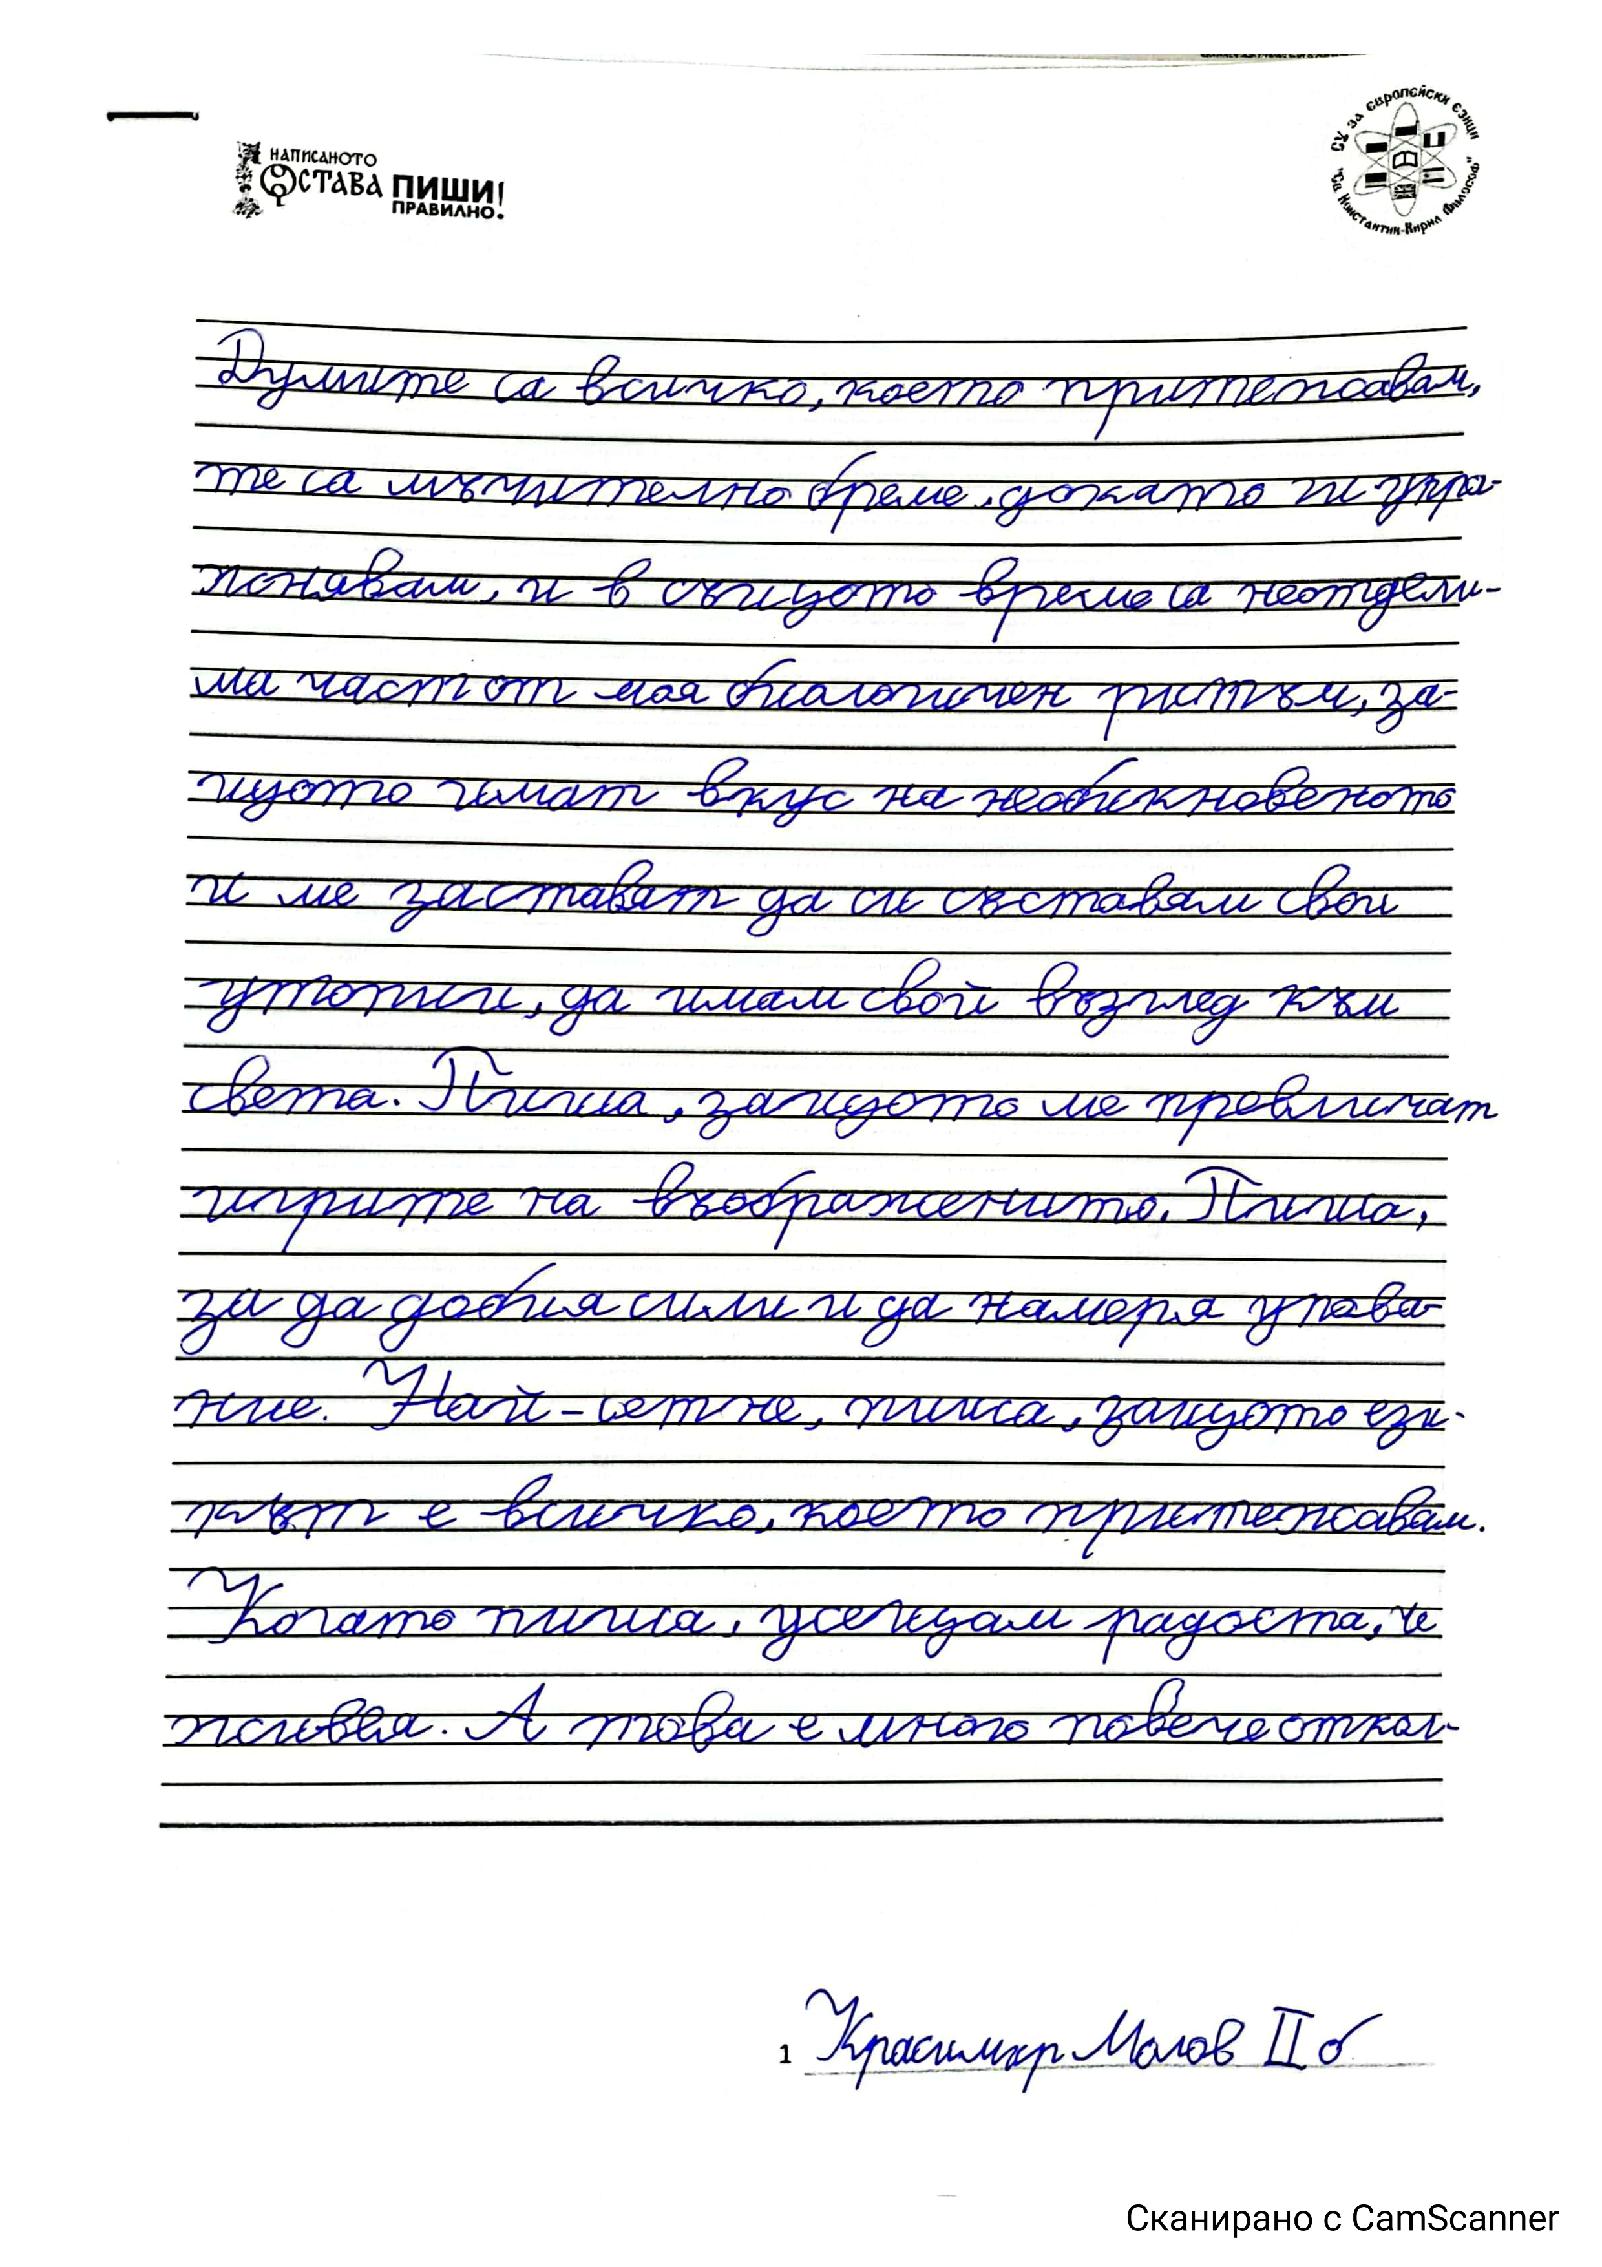 НАПИСАНОТО
ОСТАВА ПИШИ!
ПРАВИЛНО!
СУ за европейски езици
"Св. Константин-Кирил Философ"
Думите са всичко, което притежавам,
те са мъчително бреме, докато ги упра-
жнявам, и в същото време са неотдели-
ма част от моя биологичен ритъм, за-
щото имат вкус на необикновеното
и ме заставят да си съставям свои
утопии, да имам свой възглед към
света. Пиша, защото ме превличат
игрите на въображението. Пиша,
за да добия сили и да намеря упова-
ние. Най-сетне, пиша, защото ези-
кът е всичко, което притежавам.
Когато пиша, усещам радоста, че
живея. А това е много повече откол-
1 Красимир Молов II б
Сканирано с CamScanner